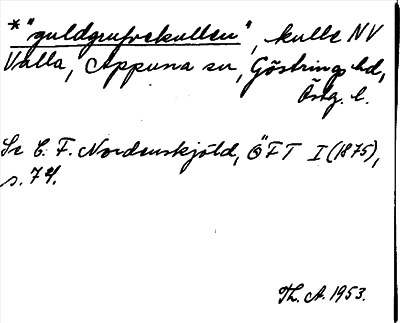 *"guldgrufvekullen", kulle NV
Valla, Appuna sn, Göstrings hd,
Östg. l.
Se C. F. Nordenskjöld, ÖFT I (1875),
s. 74.
Th. A. 1953.